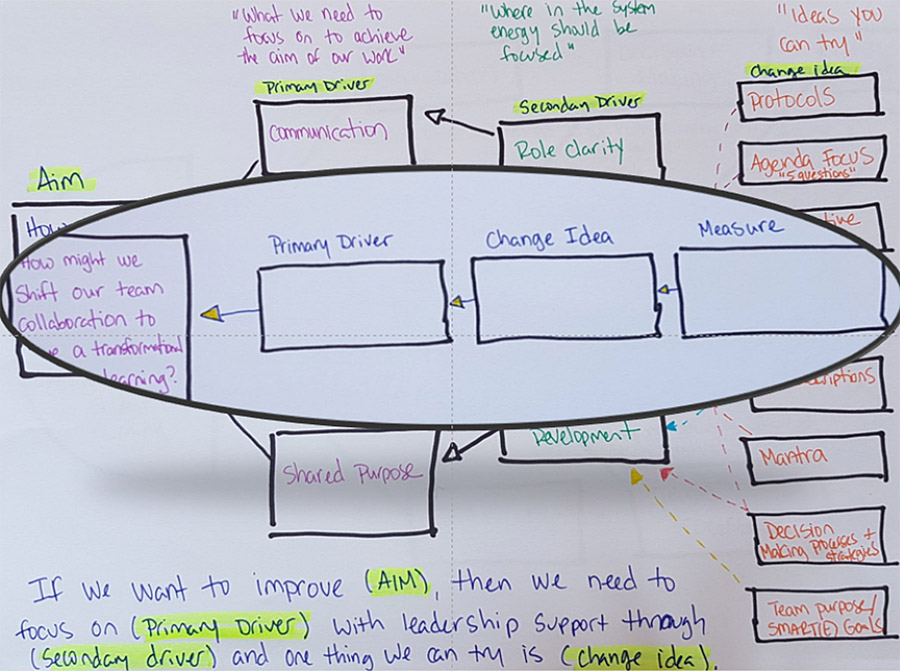 "What we need to
focus on to achieve
the aim of our work"
"Where in the system
energy should be
focused"
"Ideas you
can try"
Primary Driver
Seconday Driver
Change idea
Communication
Role clarity
Protocols
Agenda Focus
"5 questions"
Aim
How
How might we
Shift our team
collaboration to
a transformational
learning?
Primary Driver
Change Idea
Measure
Development
Shared Purpose
Mantra
Decision
Making Processes +
strategies
Team purpose/
SMART(E) Goals
If we want to improve (AIM), then we need to
focus on (Primary Driver) with leadership support through
(Secondary driver) and one thing we can try is (change idea).